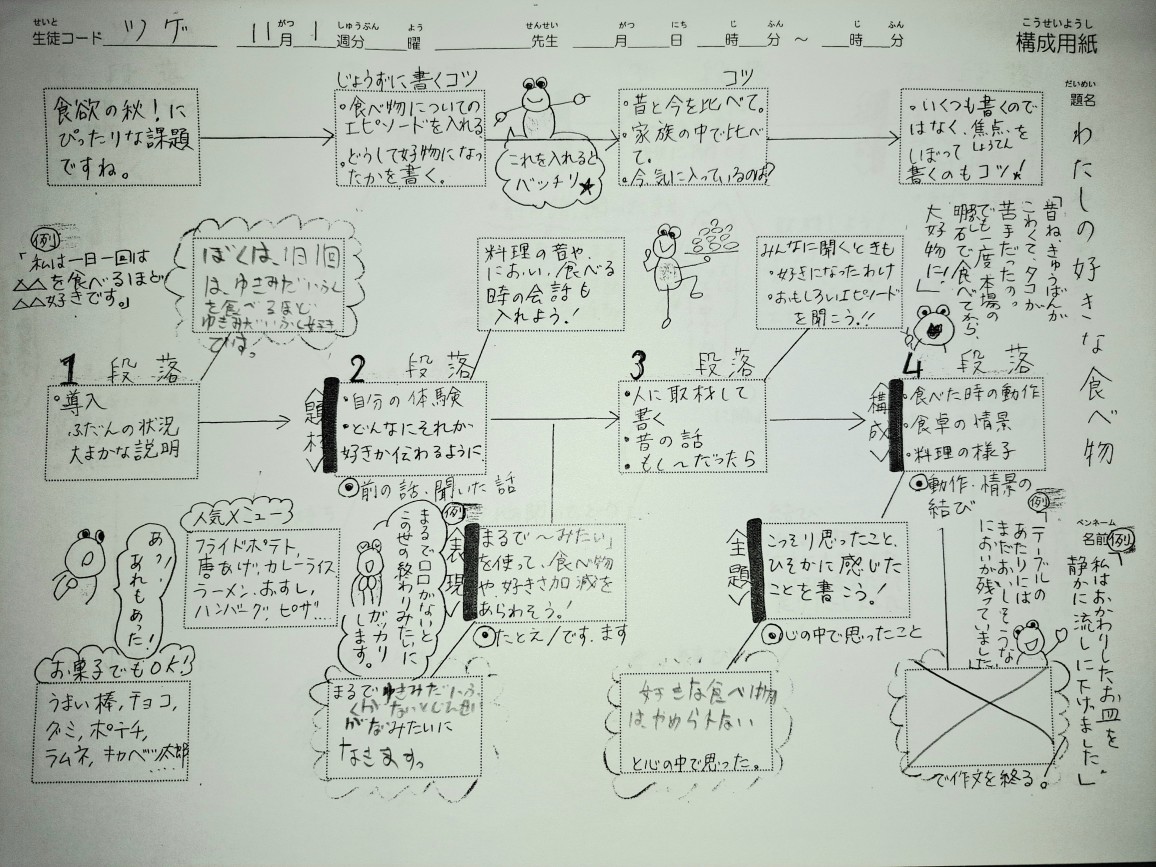 生徒コード ツゲ 11月 1週分 曜 先生 月 日 時 分 ～ 時 分
構成用紙
題名 わたしの好きな食べ物
食欲の秋！に
ぴったりな課題
ですね。
じょうずに書くコツ
・食べ物についての
エピソードを入れる
・どうして好物になっ
たかを書く。
これを入れると
バッチリ★
コツ
・昔と今を比べて。
・家族の中で比べ
て。
・今、気に入っているのは？
・いくつも書くので
はなく、焦点を
しょうてん
しぼって
書くのもコツ！
例
「私は一日一回は
△△を食べるほど
△△好きです。」
ぼくは、1日1回
は、ゆきみだいふく
を食べるほど
ゆきみだいふく好き
です。
料理の音や、
におい、食べる
時の会話も
入れよう！
みんなに聞くときも
・好きになったわけ
・おもしろいエピソード
を聞こう！！
「昔ね、きゅうばんが
こわくて、タコが
苦手だったの。
でも一度本場の
明石で食べてから、
大好物に！」
1 段落
・導入
ふだんの状況
大まかな説明
2 段落
題材
・自分の体験
・どんなにそれが
好きか伝わるように
◎前の話、聞いた話
3 段落
・人に取材して
書く
・昔の話
・もし～だったら
4 段落
構成
・食べた時の動作
・食卓の情景
・料理の様子
◎動作・情景の
結び
あっ！
あれもあった！
人気メニュー
フライドポテト、
唐あげ、カレーライス
ラーメン、おすし、
ハンバーグ、ピザ…
まるで○○がないと
この世の終わりみたいに
ガッカリ
します。
例
表現
「まるで～みたい」
を使って、食べ物
や、好きさ加減を
あらわそう！
◎たとえ/です、ます
主題
こっそり思ったこと、
ひそかに感じた
ことを書こう！
◎心の中で思ったこと
例
テーブルの
あたりには
まだおいしそうな
においが残っていました
ペンネーム
名前
例
「私はおかわりしたお皿を
静かに流しに下げました。」
お菓子でもOK！
うまい棒、チョコ、
グミ、ポテチ、
ラムネ、キャベツ太郎
……
まるでゆきみだいふ
くがないと
がなみたいに
なきます。
好きな食べ物
はやめられない
と心の中で思った。
で作文を終る。